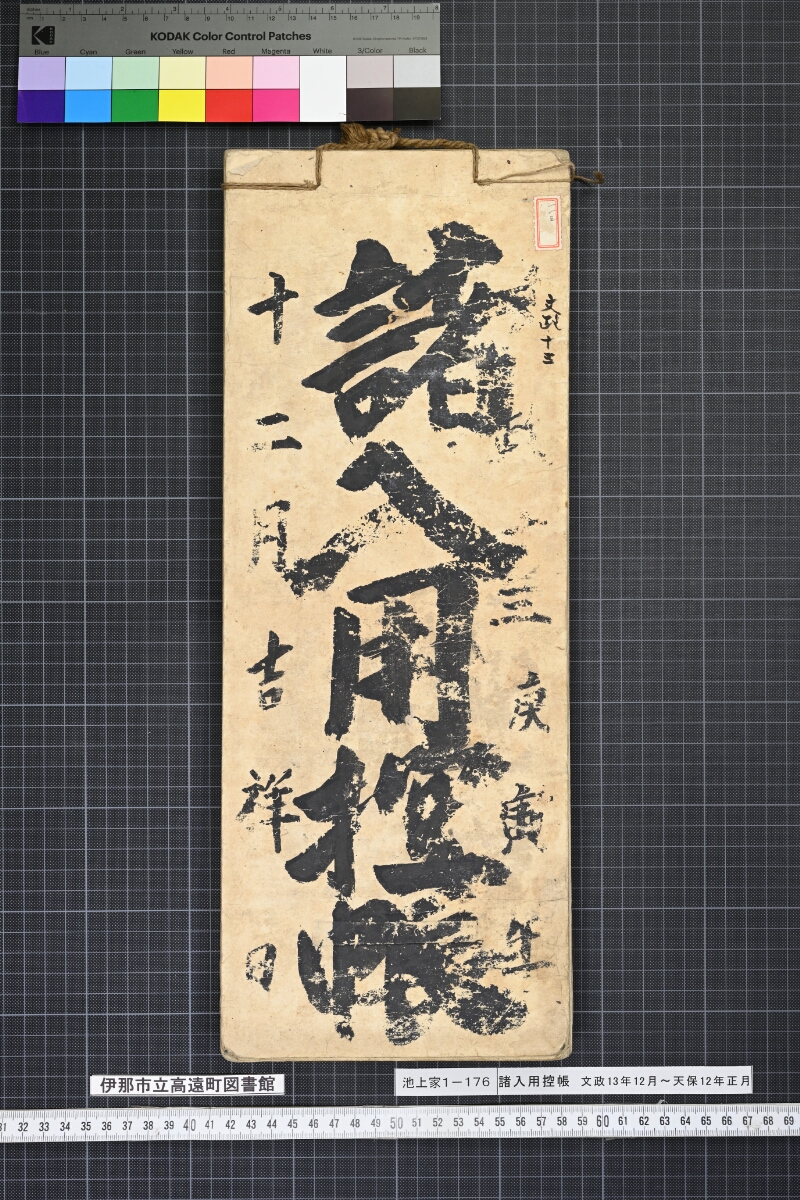 KODAK Color Control Patches
Blue Cyan Green Yellow Red Magenta White 3/Color Black
文政十三
文政十三庚寅年
諸入用控帳
十二月吉祥日
伊那市立高遠町図書館
池上家1－176 諸入用控帳 文政13年12月～天保12年正月
31 32 33 34 35 36 37 38 39 40 41 42 43 44 45 46 47 48 49 50 51 52 53 54 55 56 57 58 59 60 61 62 63 64 65 66 67 68 69